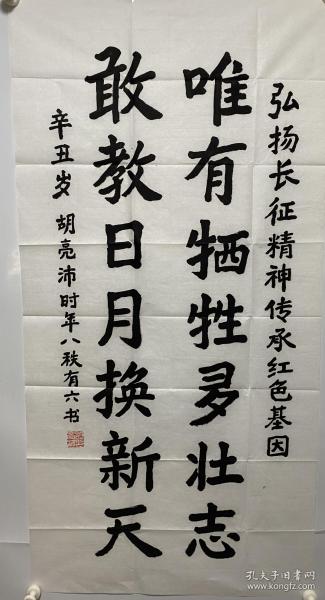 弘扬长征精神传承红色基因
唯有牺牲多壮志
敢教日月换新天
辛丑岁 胡亮沛时年八秩有六书
孔夫子旧书网
www.kongfz.com